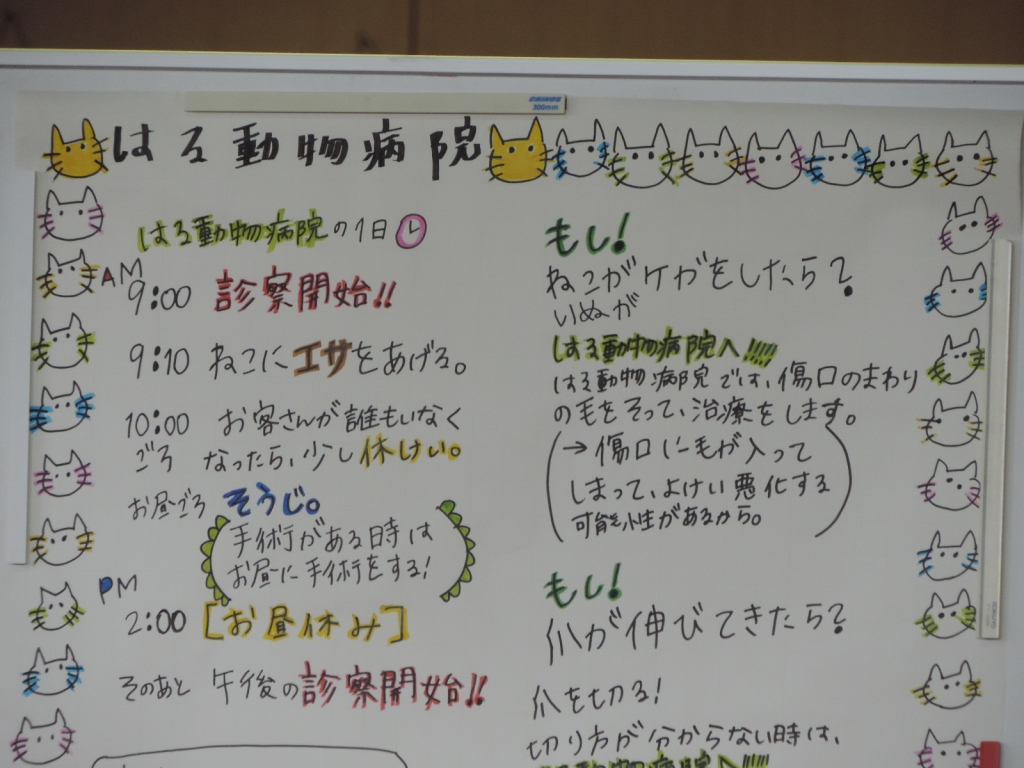 はる動物病院
300mm
はる動物病院の1日
AM
9:00 診察開始!!
9:10 ねこにエサをあげる。
10:00 お客さんが誰もいなく
ごろ なったら、少し休けい。
お昼ごろ そうじ。
手術がある時は
お昼に手術をする!
PM
2:00 [お昼休み]
そのあと 午後の診察開始!!
もし!
ねこがケガをしたら?
いぬが
はる動物病院へ!!!!!
はる動物病院では、傷口のまわり
の毛をそって、治療をします。
(→傷口に毛が入って
しまって、よけい悪化する
可能性があるから。)
もし!
爪が伸びてきたら?
爪を切る!
切り方が分からない時は、